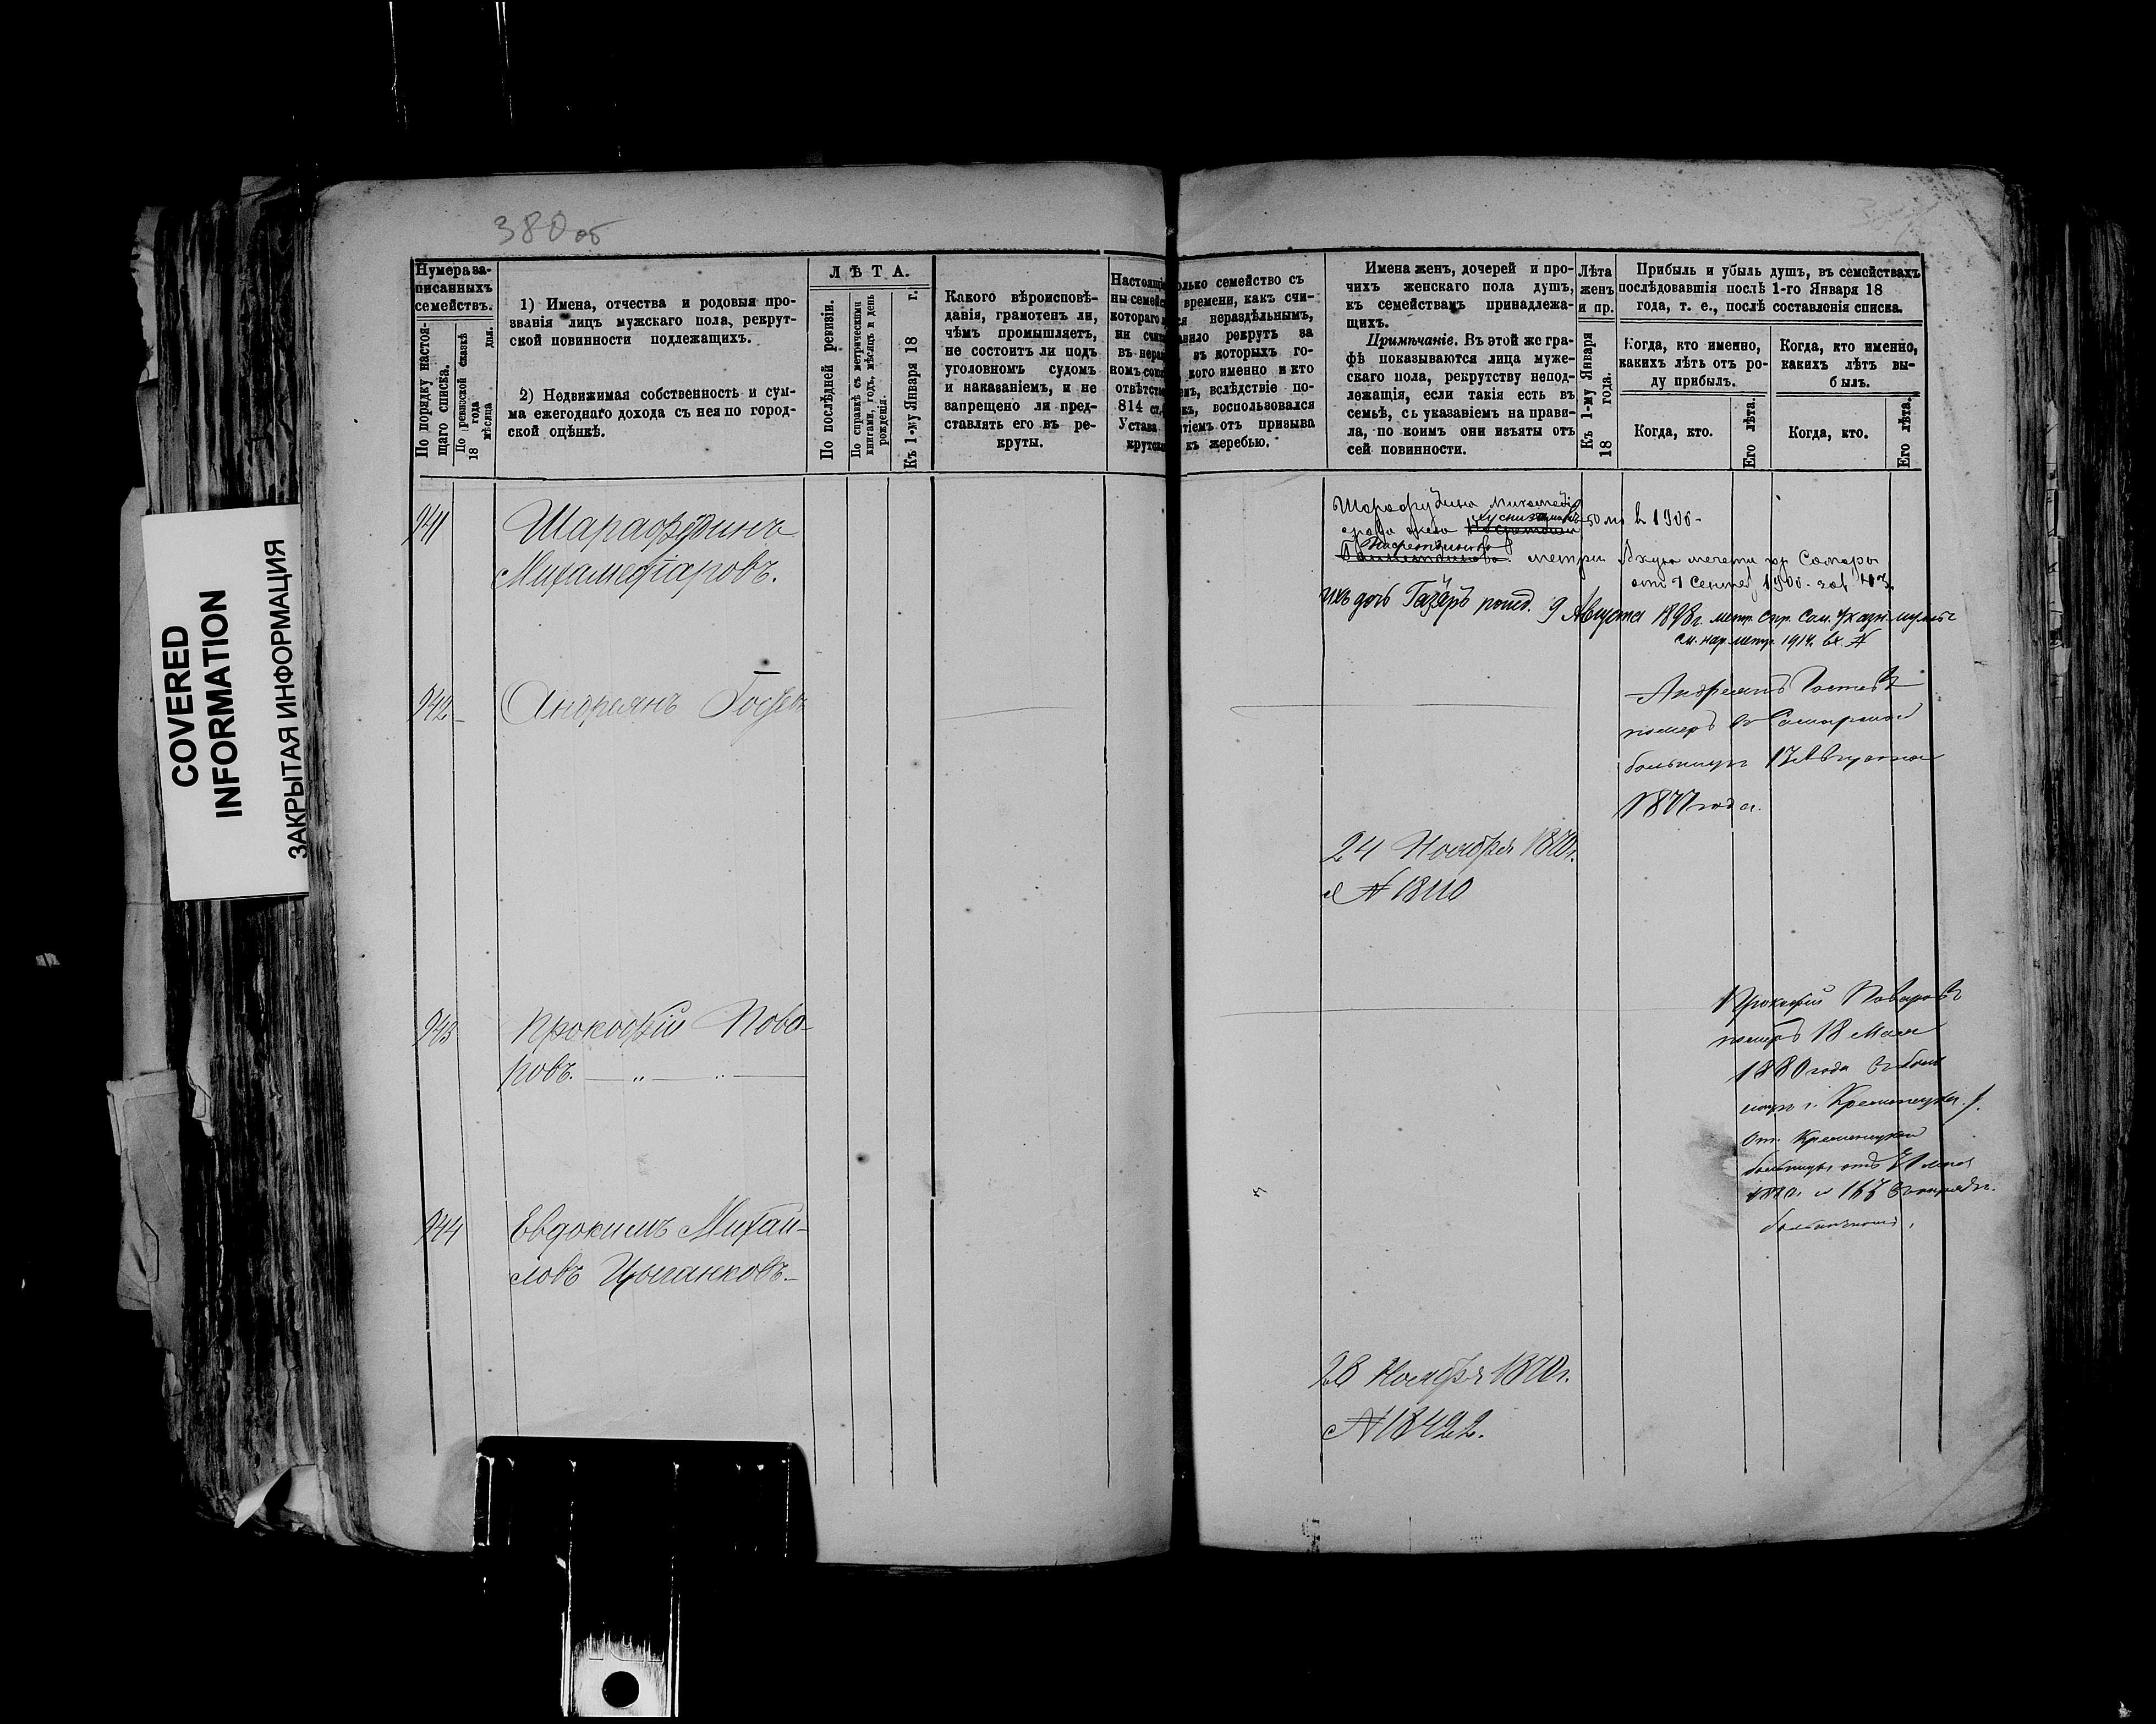 380 об
COVERED
INFORMATION
ЗАКРЫТАЯ ИНФОРМАЦИЯ
Нумера за-
писанныхъ
семействъ.
По порядку настоя-
щаго списка.
По ревизской сказкѣ
18 года
мѣсяца дня.
1) Имена, отчества и родовыя про-
званія лицъ мужскаго пола, рекрут-
ской повинности подлежащихъ.
2) Недвижимая собственность и сум-
ма ежегоднаго дохода съ нея по город-
ской оцѣнкѣ.
ЛѢТА.
По послѣдней ревизіи.
По справкѣ съ метрическими
книгами, годъ, мѣсяцъ и день
рожденія.
Къ 1-му Января 18 г.
Какого вѣроисповѣ-
данія, грамотенъ ли,
чѣмъ промышляетъ,
не состоитъ ли подъ
уголовнымъ судомъ
и наказаніемъ, и не
запрещено ли пред-
ставлять его въ ре-
круты.
Настоящі
ны семейс
котораго
ни счит
въ нера
номъ сою
отвѣтст
814 ст.
Устава
крутска
олько семейство съ
времени, какъ счи-
ся нераздѣльнымъ,
авило рекрутъ за
въ которыхъ го-
кого именно и кто
енъ, вслѣдствіе по-
къ, воспользовался
тіемъ отъ призыва
къ жеребью.
Имена женъ, дочерей и про-
чихъ женскаго пола душъ,
къ семействамъ принадлежа-
щихъ.
Примѣчаніе. Въ этой же гра-
фѣ показываются лица муже-
скаго пола, рекрутству непод-
лежащія, если такія есть въ
семьѣ, съ указаніемъ на прави-
ла, по коимъ они изъяты отъ
сей повинности.
Лѣта
женъ
и пр.
Къ 1-му Января
18 года.
Прибыль и убыль душъ, въ семействахъ
послѣдовавшія послѣ 1-го Января 18
года, т. е., послѣ составленія списка.
Когда, кто именно,
какихъ лѣтъ отъ ро-
ду прибылъ.
Когда, кто.
Его лѣта.
Когда, кто именно,
какихъ лѣтъ вы-
былъ.
Когда, кто.
Его лѣта.
941
Шарафудинъ
Мухамедіаровъ.
жена
метрич. мечети гр. Самары
ихъ дочь 9 Августа 1898 г. метр.
см. нар. метр. 1914. вх. №
942
Андреянъ Гостевъ
Андреянъ Гостевъ
померъ въ Самарской
больницѣ 17 Августа
1871 года.
24 Ноября 1870 г.
№ 18110
943
Прокофій Пова-
ровъ.
Прокофій Поваровъ
померъ 18 Мая
1880 года въ боль
ницѣ г. Кременчуга
от. Кременчугской
больницы отъ
944
Евдокимъ Михай-
ловъ Цыганковъ
28 Ноября 1870 г.
№ 18422.